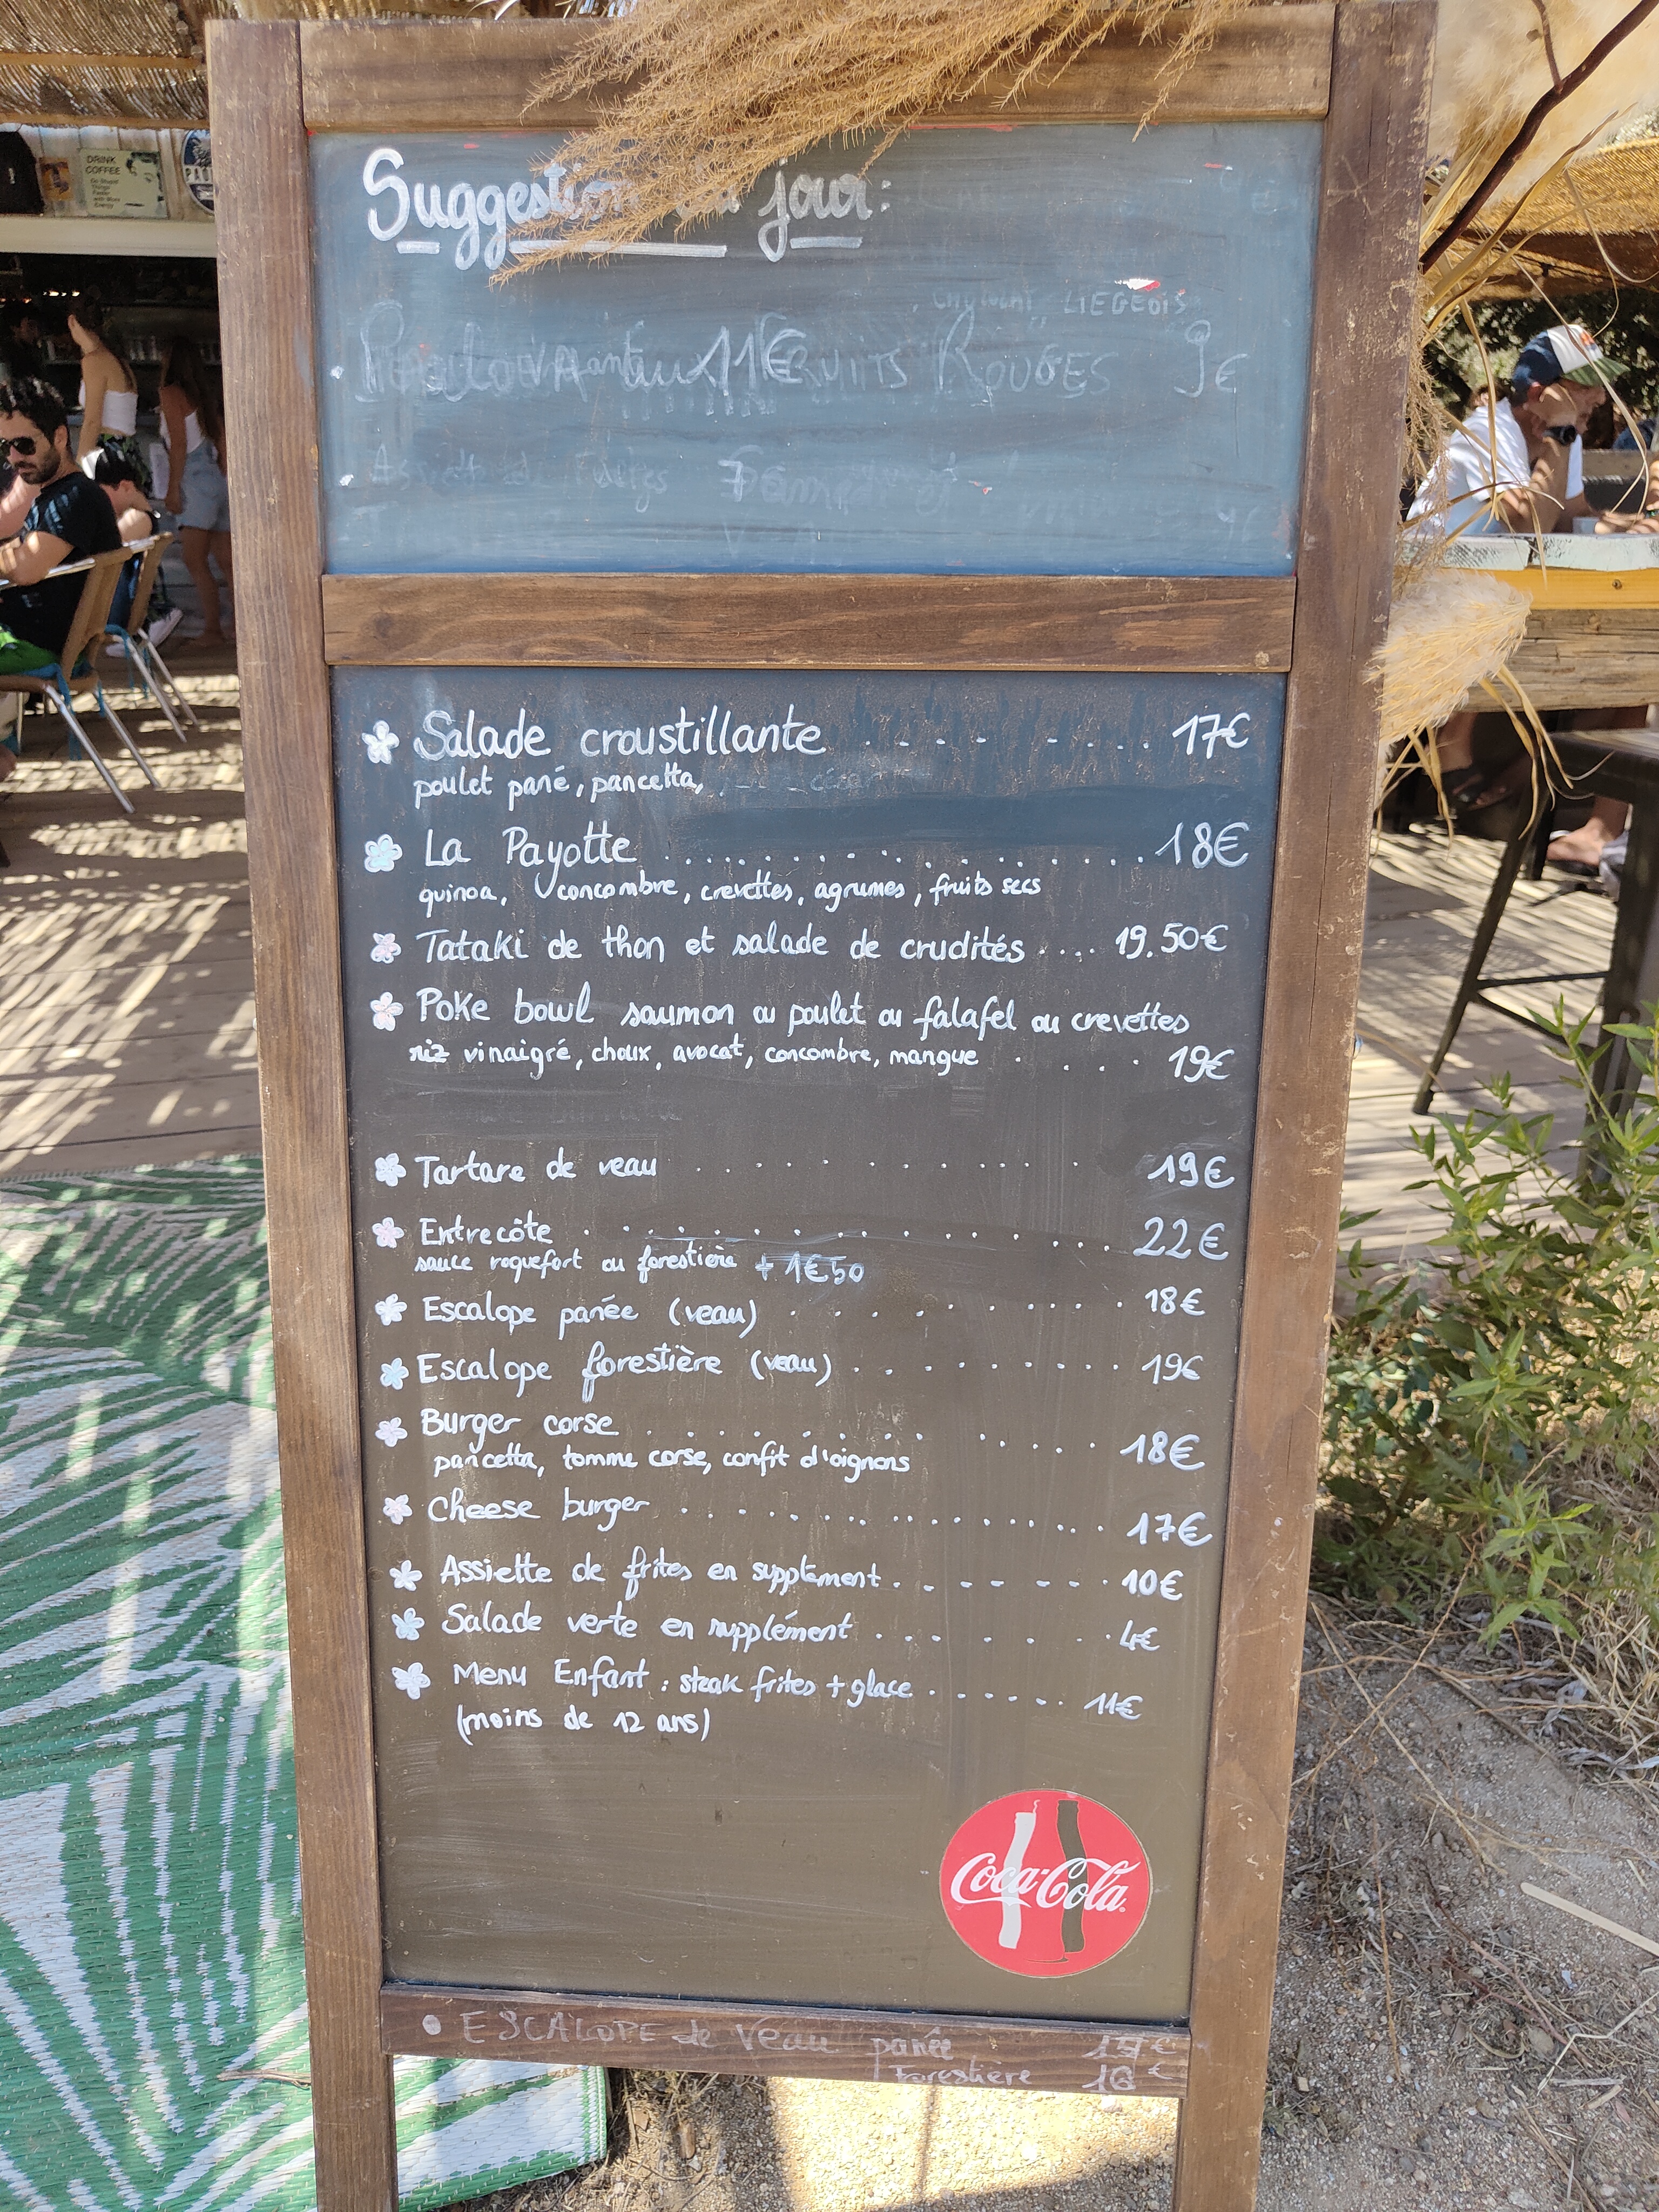 DRINK
COFFEE
Do Stupid
Things
Faster
with More
Energy
Suggestion du jour:
CHOCOLAT LIEGEOIS
11€ FRUITS ROUGES 9€
Assiette de
✿ Salade croustillante . . . . . . . . . 17€
poulet pané, pancetta,
✿ La Payotte . . . . . . . . . . . . . . . 18€
quinoa, concombre, crevettes, agrumes, fruits secs
✿ Tataki de thon et salade de crudités . . . . 19.50€
✿ Poke bowl saumon ou poulet ou falafel ou crevettes
riz vinaigré, choux, avocat, concombre, mangue . . . . 19€
✿ Tartare de veau . . . . . . . . . . . 19€
✿ Entrecôte . . . . . . . . . . . . . 22€
sauce roquefort ou forestière + 1€50
✿ Escalope panée (veau) . . . . . . . . . 18€
✿ Escalope forestière (veau) . . . . . . . . . 19€
✿ Burger corse . . . . . . . . . . . . 18€
pancetta, tomme corse, confit d'oignons
✿ Cheese burger . . . . . . . . . . . . . . 17€
✿ Assiette de frites en supplément . . . . . . . 10€
✿ Salade verte en supplément . . . . . . . 4€
✿ Menu Enfant : steak frites + glace . . . . . . 11€
(moins de 12 ans)
Coca-Cola
• ESCALOPE de veau panée
Forestière